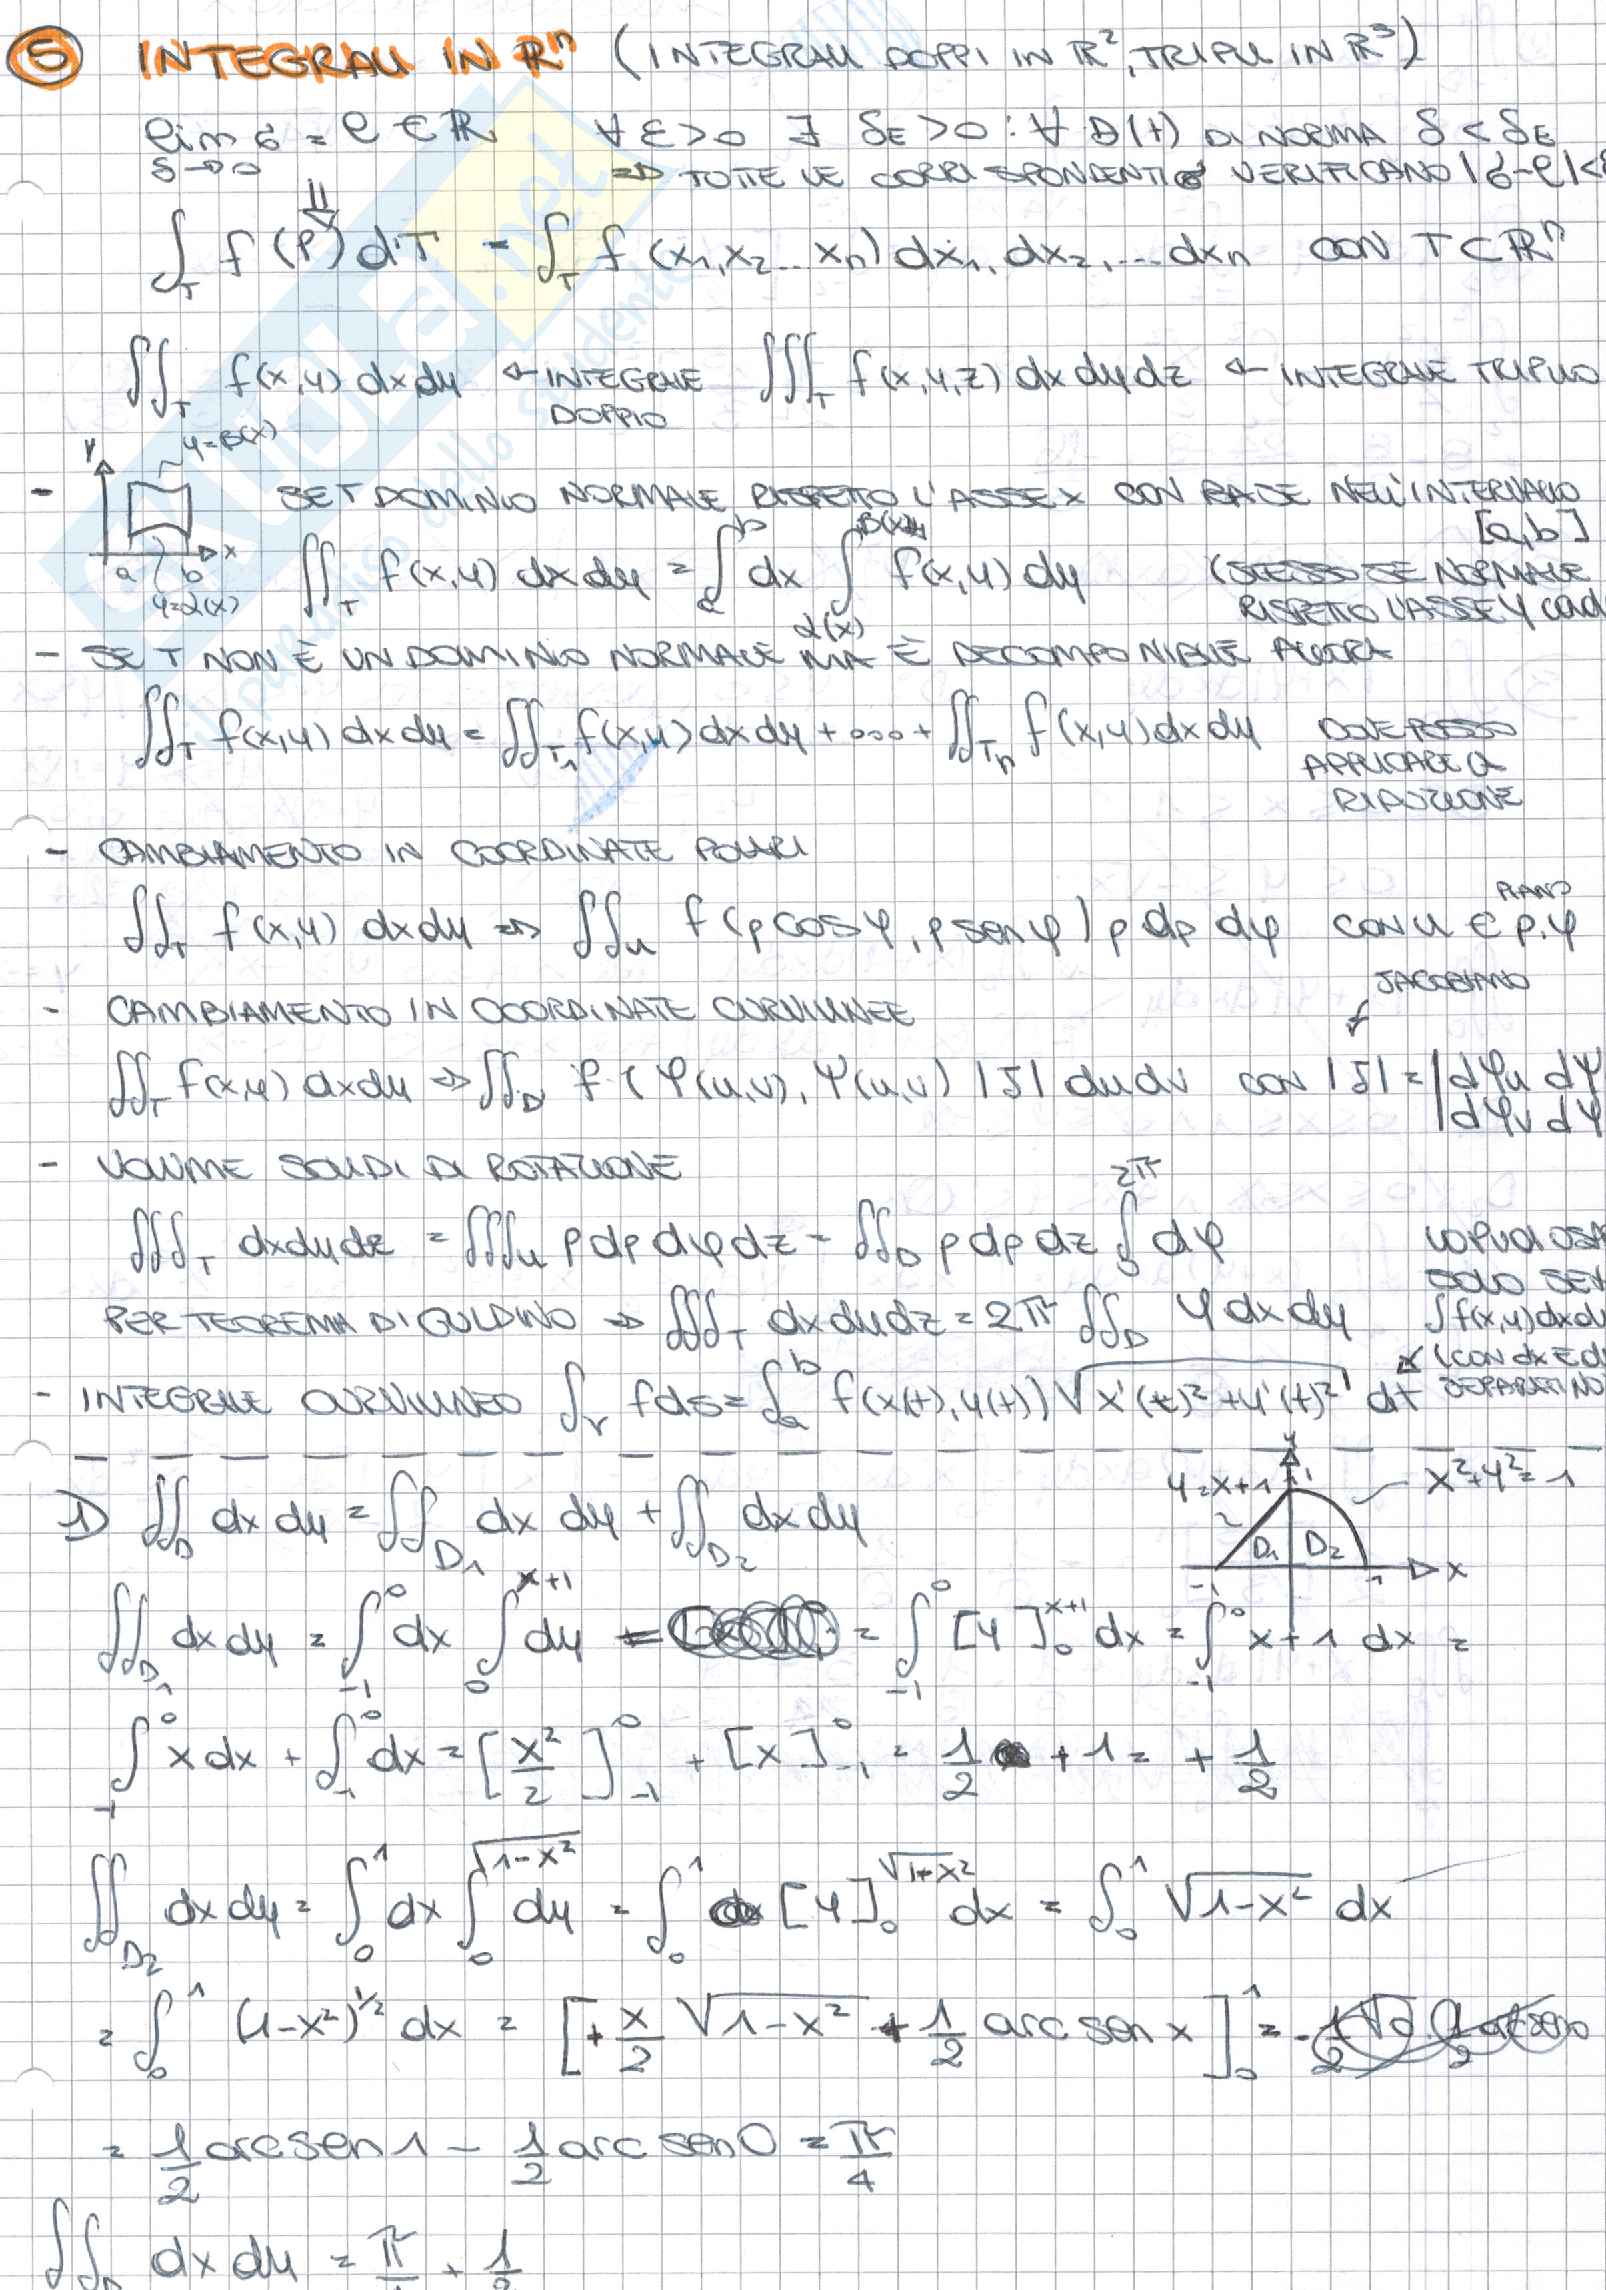 5 INTEGRALI IN ℝⁿ (INTEGRALI DOPPI IN ℝ², TRIPLI IN ℝ³)
lim σ = ℓ ∈ ℝ ∀ε>0 ∃ δε>0 : ∀ D(t) DI NORMA δ < δε
δ→0 ⇒ TUTTE LE CORRISPONDENTI σ VERIFICANO |σ-ℓ|<ε
∫_T f(P) dT = ∫_T f(x₁,x₂...xₙ) dx₁, dx₂,...dxₙ CON T⊂ℝⁿ
∬_T f(x,y) dxdy ← INTEGRALE DOPPIO ∭_T f(x,y,z) dxdydz ← INTEGRALE TRIPLO
y=β(x)
y
- SE T DOMINIO NORMALE RISPETTO L'ASSE X CON BASE NELL'INTERVALLO [a,b]
a b x
y=α(x)
∬_T f(x,y) dxdy = ∫_a^b dx ∫_α(x)^β(x) f(x,y) dy (STESSO SE NORMALE RISPETTO L'ASSE y
- SE T NON È UN DOMINIO NORMALE MA È DECOMPONIBILE ALLORA
∬_T f(x,y) dxdy = ∬_T₁ f(x,y) dxdy + ... + ∬_Tₙ f(x,y) dxdy DOVE POSSO APPLICARE LA RIDUZIONE
- CAMBIAMENTO IN COORDINATE POLARI
∬_T f(x,y) dxdy ⇒ ∬_u f(ρcosφ, ρsenφ) ρ dρ dφ CON u ∈ PIANO ρ,φ
- CAMBIAMENTO IN COORDINATE CURVILINEE
JACOBIANO
∬_T f(x,y) dxdy ⇒ ∬_D f(φ(u,v), ψ(u,v)) |J| dudv CON |J| = |dφu dψ
dφv dψ
- VOLUME SOLIDI DI ROTAZIONE
∭_T dxdydz = ∭_u ρdρdφdz = ∬_D ρdρdz ∫_0^2π dφ
PER TEOREMA DI GULDINO ⇒ ∭_T dxdydz = 2π ∬_D y dxdy
LO PUOI USA
SOLO SE
∫f(x,y)dxd
(CON dx E d
SEPARATI NO
- INTEGRALE CURVILINEO ∫_γ f ds = ∫_a^b f(x(t),y(t)) √x'(t)²+y'(t)² dt
y=x+1 1 y x²+y²=1
D₁ D₂
-1 1 x
1) ∬_D dxdy = ∬_D₁ dx dy + ∬_D₂ dxdy
∬_D₁ dxdy = ∫_-1^0 dx ∫_0^x+1 dy = ∫_-1^0 [y]_0^x+1 dx = ∫_-1^0 x+1 dx =
∫_-1^0 x dx + ∫_-1^0 dx = [x²/2]_-1^0 + [x]_-1^0 = 1/2 + 1 = + 1/2
∬_D₂ dxdy = ∫_0^1 dx ∫_0^√1-x² dy = ∫_0^1 [y]_0^√1-x² dx = ∫_0^1 √1-x² dx
= ∫_0^1 (1-x²)^1/2 dx = [+ x/2 √1-x² + 1/2 arcsen x]_0^1 =
= 1/2 arcsen 1 - 1/2 arcsen 0 = π/4
∬_D dxdy = π/4 + 1/2